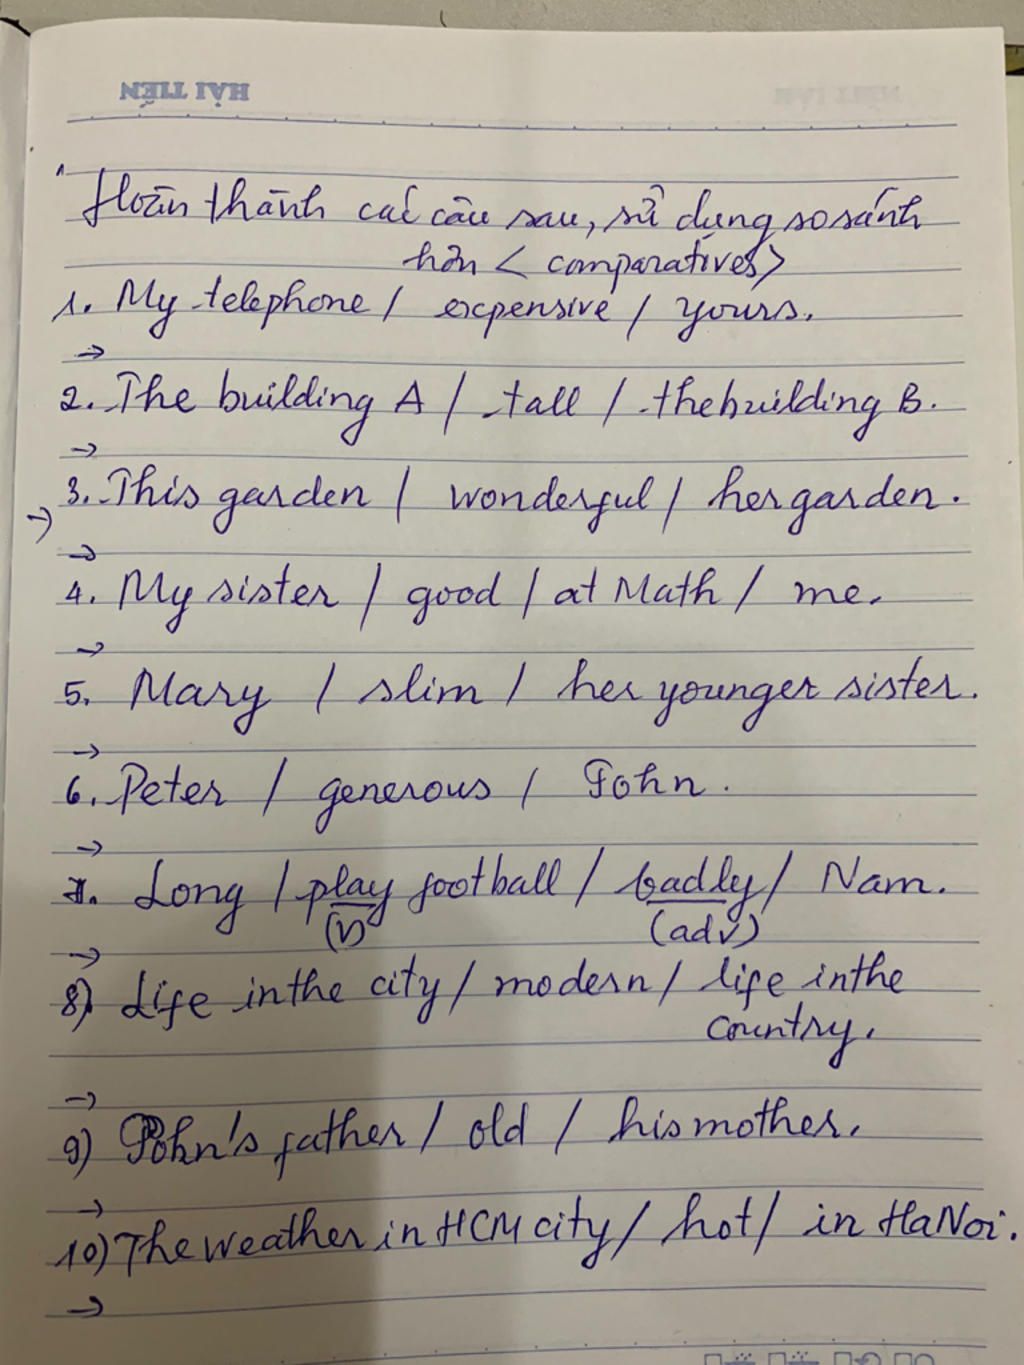 HẢI TIẾN
Hoàn thành các câu sau, sử dụng so sánh
hơn < comparatives>
1. My telephone / expensive / yours.
→
2. The building A / tall / the building B.
→
3. This garden / wonderful / her garden.
→
→
4. My sister / good / at Math / me.
→
5. Mary / slim / her younger sister.
→
6. Peter / generous / John.
→
7. Long / play football / badly / Nam.
(v) (adv)
→
8) Life in the city / modern / life in the
country.
→
9) John's father / old / his mother.
→
10) The weather in HCM city / hot / in HaNoi.
→